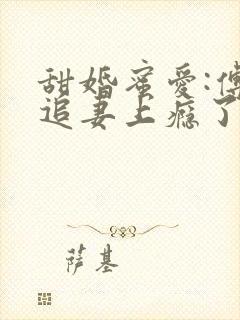 甜婚蜜爱:傅
追妻上瘾了
萨基